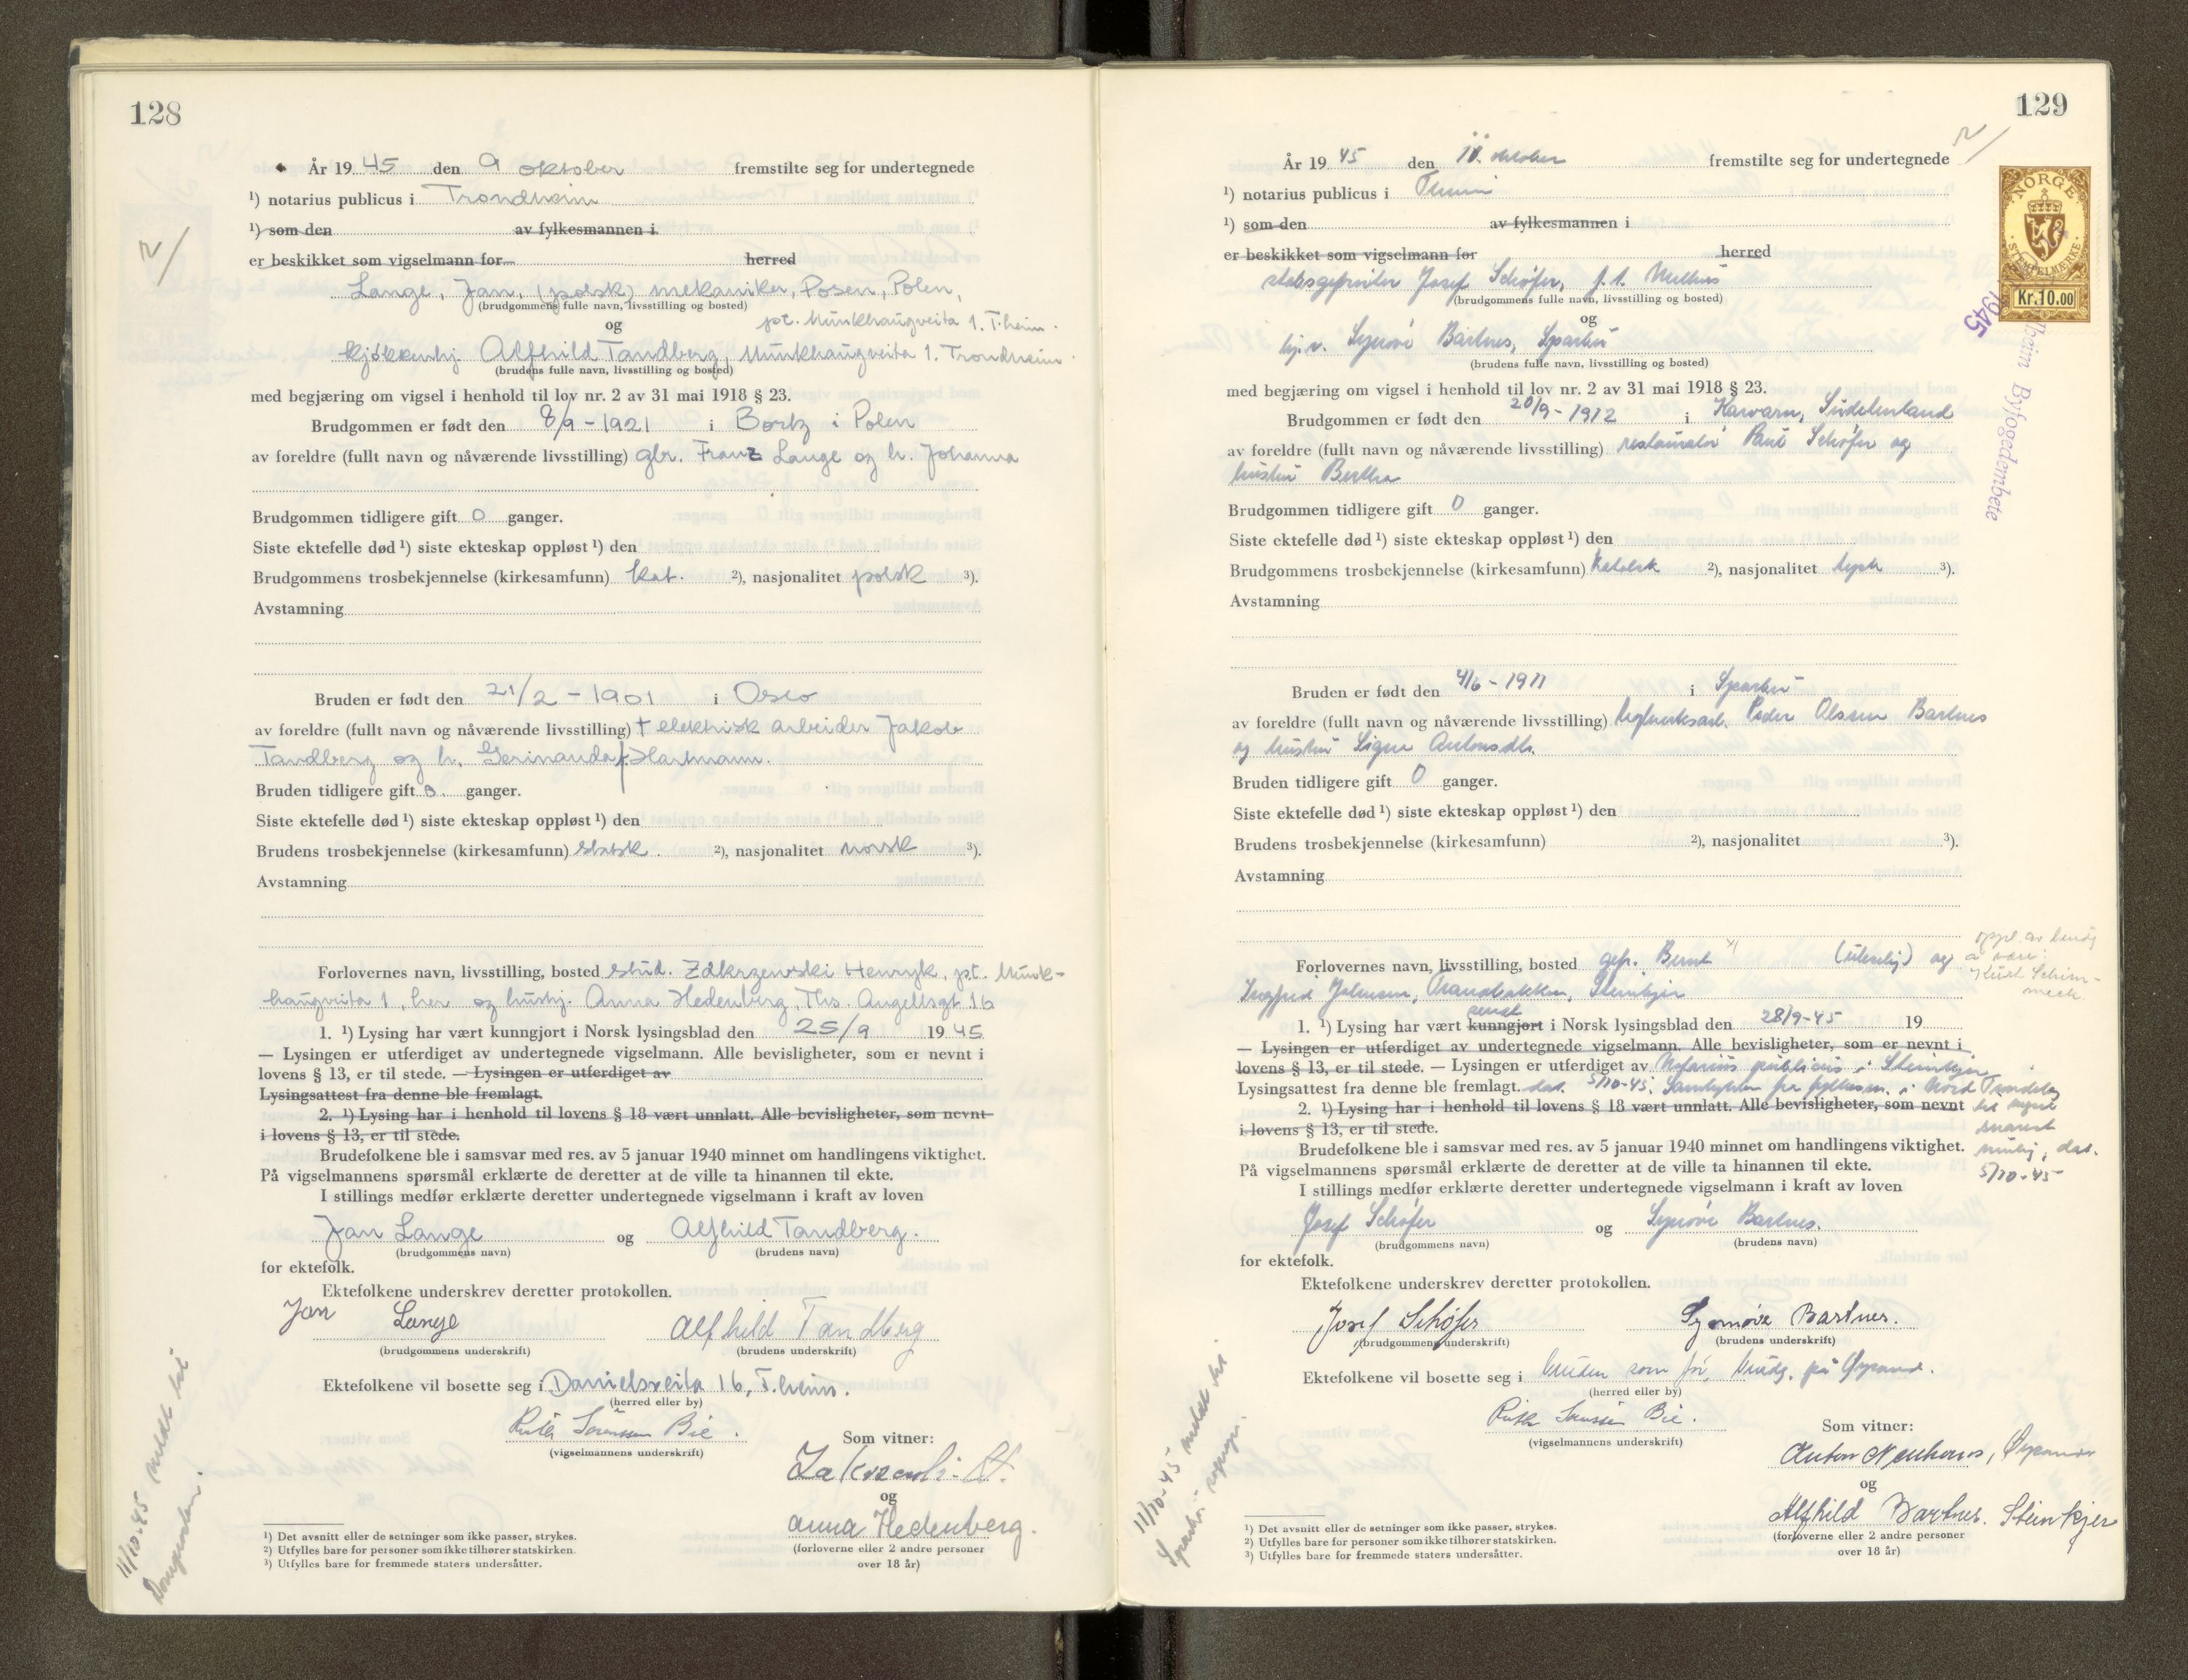 128
År 19 45 den 9 oktober fremstilte seg for undertegnede
¹) notarius publicus i Trondheim
¹) som den av fylkesmannen i
er beskikket som vigselmann for herred
Lange, Jan, (polsk) mekaniker, Posen, Polen,
(brudgommens fulle navn, livsstilling og bosted)
og pt. Munkhaugveita 1. T.heim.
kjøkkenhj. Alfhild Tandberg, Munkhaugveita 1. Trondheim
(brudens fulle navn, livsstilling og bosted)
med begjæring om vigsel i henhold til lov nr. 2 av 31 mai 1918 § 23.
Brudgommen er født den 8/9 - 1921 i Bortz i Polen
av foreldre (fullt navn og nåværende livsstilling) gbr. Franz Lange og h. Johanna
Brudgommen tidligere gift 0 ganger.
Siste ektefelle død ¹) siste ekteskap oppløst ¹) den
Brudgommens trosbekjennelse (kirkesamfunn) kat. ²), nasjonalitet polsk ³).
Avstamning
Bruden er født den 21/2 - 1901 i Oslo
av foreldre (fullt navn og nåværende livsstilling) + elektrisk arbeider Jakob
Tandberg og h. Gerinanda f. Hartmann.
Bruden tidligere gift 0. ganger.
Siste ektefelle død ¹) siste ekteskap oppløst ¹) den
Brudens trosbekjennelse (kirkesamfunn) statsk. ²), nasjonalitet norsk ³).
Avstamning
Forlovernes navn, livsstilling, bosted stud. Zdkrzewski Henryk, pt. Munk-
haugveita 1, her og hushj. Anna Hedenberg, Ths. Angellsgt. 16
1. ¹) Lysing har vært kunngjort i Norsk lysingsblad den 25/9 19 45
— Lysingen er utferdiget av undertegnede vigselmann. Alle bevisligheter, som er nevnt i
lovens § 13, er til stede. — Lysingen er utferdiget av
Lysingsattest fra denne ble fremlagt.
2. ¹) Lysing har i henhold til lovens § 18 vært unnlatt. Alle bevisligheter, som nevnt
i lovens § 13, er til stede.
Brudefolkene ble i samsvar med res. av 5 januar 1940 minnet om handlingens viktighet.
På vigselmannens spørsmål erklærte de deretter at de ville ta hinannen til ekte.
I stillings medfør erklærte deretter undertegnede vigselmann i kraft av loven
Jan Lange og Alfhild Tandberg.
(brudgommens navn) (brudens navn)
for ektefolk.
Ektefolkene underskrev deretter protokollen.
Jan Lange Alfhild Tandberg
(brudgommens underskrift) (brudens underskrift)
Ektefolkene vil bosette seg i Danielsveita 16, T.heim.
(herred eller by)
Ruth Sørenssen Bie.
(vigselmannens underskrift)
Som vitner:
og
Anna Hedenberg.
(forloverne eller 2 andre personer
over 18 år)
¹) Det avsnitt eller de setninger som ikke passer, strykes.
²) Utfylles bare for personer som ikke tilhører statskirken.
³) Utfylles bare for fremmede staters undersåtter.
11/10-45 meldt til
129
År 19 45 den 10. oktober fremstilte seg for undertegnede
¹) notarius publicus i
¹) som den av fylkesmannen i
er beskikket som vigselmann for herred
stabsgefreiter Josef Schöfer, p.t. Melhus
(brudgommens fulle navn, livsstilling og bosted)
og
Synnøve Bartnes, Sparbu
(brudens fulle navn, livsstilling og bosted)
med begjæring om vigsel i henhold til lov nr. 2 av 31 mai 1918 § 23.
Brudgommen er født den 20/9 - 1912 i Karwarn, Sudetenland
av foreldre (fullt navn og nåværende livsstilling) restauratør Paul Schöfer og
hustru Bertha
Brudgommen tidligere gift 0 ganger.
Siste ektefelle død ¹) siste ekteskap oppløst ¹) den
Brudgommens trosbekjennelse (kirkesamfunn) katolsk ²), nasjonalitet tysk ³).
Avstamning
Bruden er født den 4/6 - 1911 i Sparbu
av foreldre (fullt navn og nåværende livsstilling) Peder Olssen Bartnes
og hustru Signe Antonsdtr.
Bruden tidligere gift 0 ganger.
Siste ektefelle død ¹) siste ekteskap oppløst ¹) den
Brudens trosbekjennelse (kirkesamfunn) ²), nasjonalitet ³).
Avstamning
Forlovernes navn, livsstilling, bosted gefr. Bernt x) og
Ingfrid Johnsen, Steinkjer
sendt
1. ¹) Lysing har vært kunngjort i Norsk lysingsblad den 28/9-45 19
— Lysingen er utferdiget av undertegnede vigselmann. Alle bevisligheter, som er nevnt i
lovens § 13, er til stede. — Lysingen er utferdiget av Notarius publicus i Steinkjer.
Lysingsattest fra denne ble fremlagt. dat. 5/10-45. Samtykke fra fylkesm. i Nord Trøndelag
2. ¹) Lysing har i henhold til lovens § 18 vært unnlatt. Alle bevisligheter, som nevnt
i lovens § 13, er til stede.
til vigsel
snarest
mulig, dat.
5/10-45
Brudefolkene ble i samsvar med res. av 5 januar 1940 minnet om handlingens viktighet.
På vigselmannens spørsmål erklærte de deretter at de ville ta hinannen til ekte.
I stillings medfør erklærte deretter undertegnede vigselmann i kraft av loven
Josef Schöfer og Synnøve Bartnes.
(brudgommens navn) (brudens navn)
for ektefolk.
Ektefolkene underskrev deretter protokollen.
Josef Schöfer Synnøve Bartnes.
(brudgommens underskrift) (brudens underskrift)
Ektefolkene vil bosette seg i bruden som før, brudg. på Øysand.
(herred eller by)
Ruth Sørenssen Bie.
(vigselmannens underskrift)
Som vitner:
Anton Neuhaus, Øysand
og
Alfhild Bartnes. Steinkjer
(forloverne eller 2 andre personer
over 18 år)
¹) Det avsnitt eller de setninger som ikke passer, strykes.
²) Utfylles bare for personer som ikke tilhører statskirken.
³) Utfylles bare for fremmede staters undersåtter.
11/10-45 meldt til
NORGE
STEMPELMERKE
Kr.10.00
1945